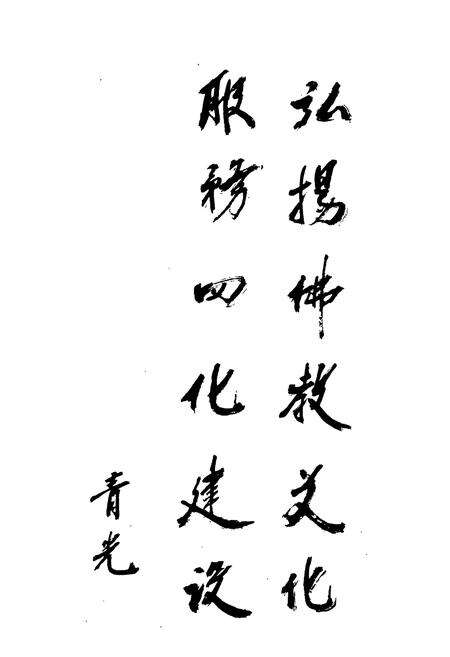 弘揚佛教文化
服務四化建设
青光